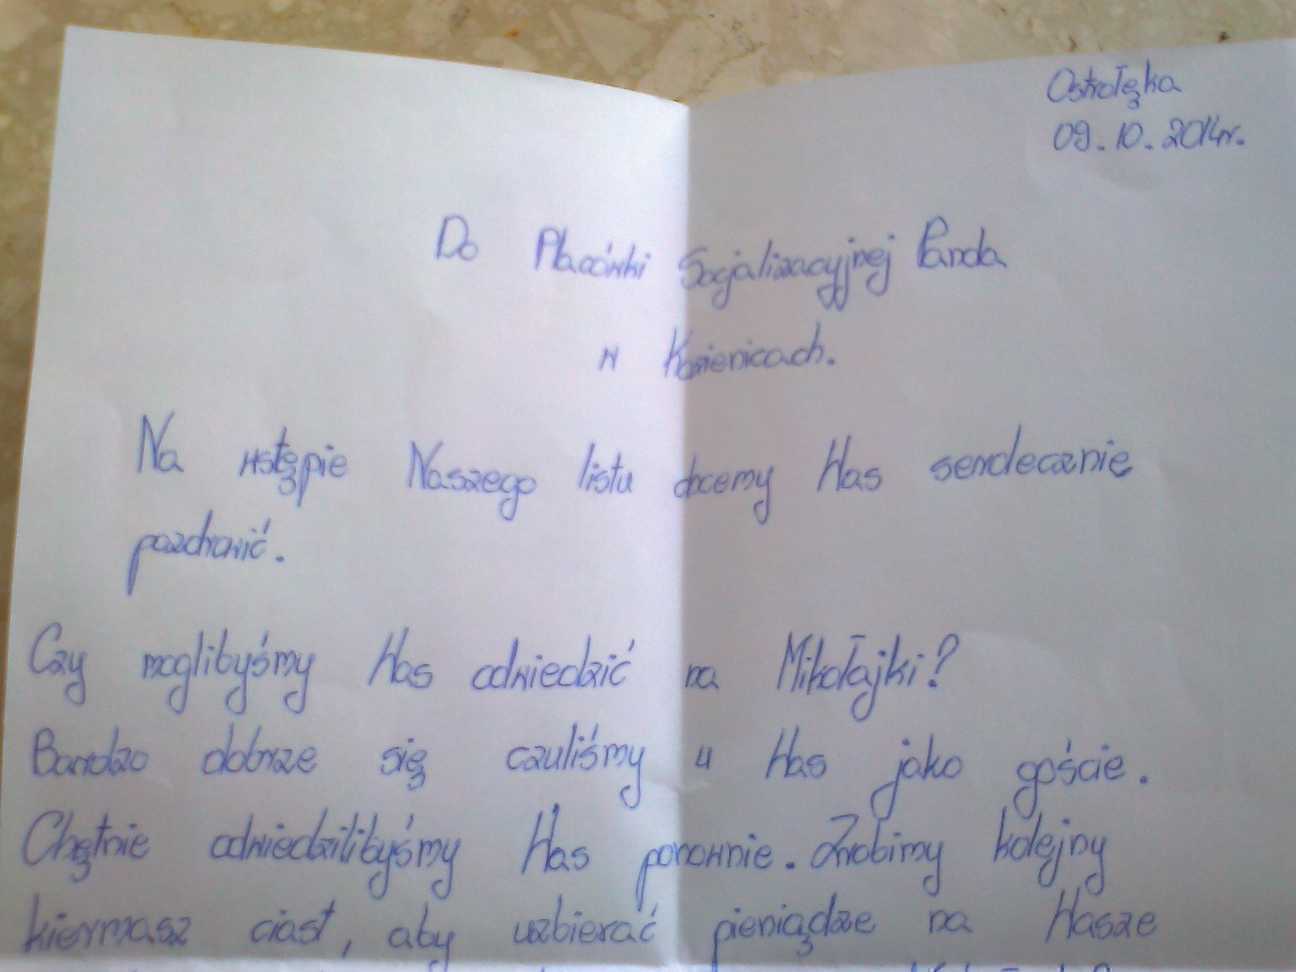 Ostrołęka
09.10.2014r.
Do Placówki Socjalizacyjnej Panda
w Kozienicach.
Na wstępie Naszego listu chcemy Was serdecznie
pozdrowić.
Czy moglibyśmy Was odwiedzić na Mikołajki?
Bardzo dobrze się czuliśmy u Was jako goście.
Chętnie odwiedzilibyśmy Was ponownie. Zrobimy kolejny
kiermasz ciast, aby uzbierać pieniądze na Wasze